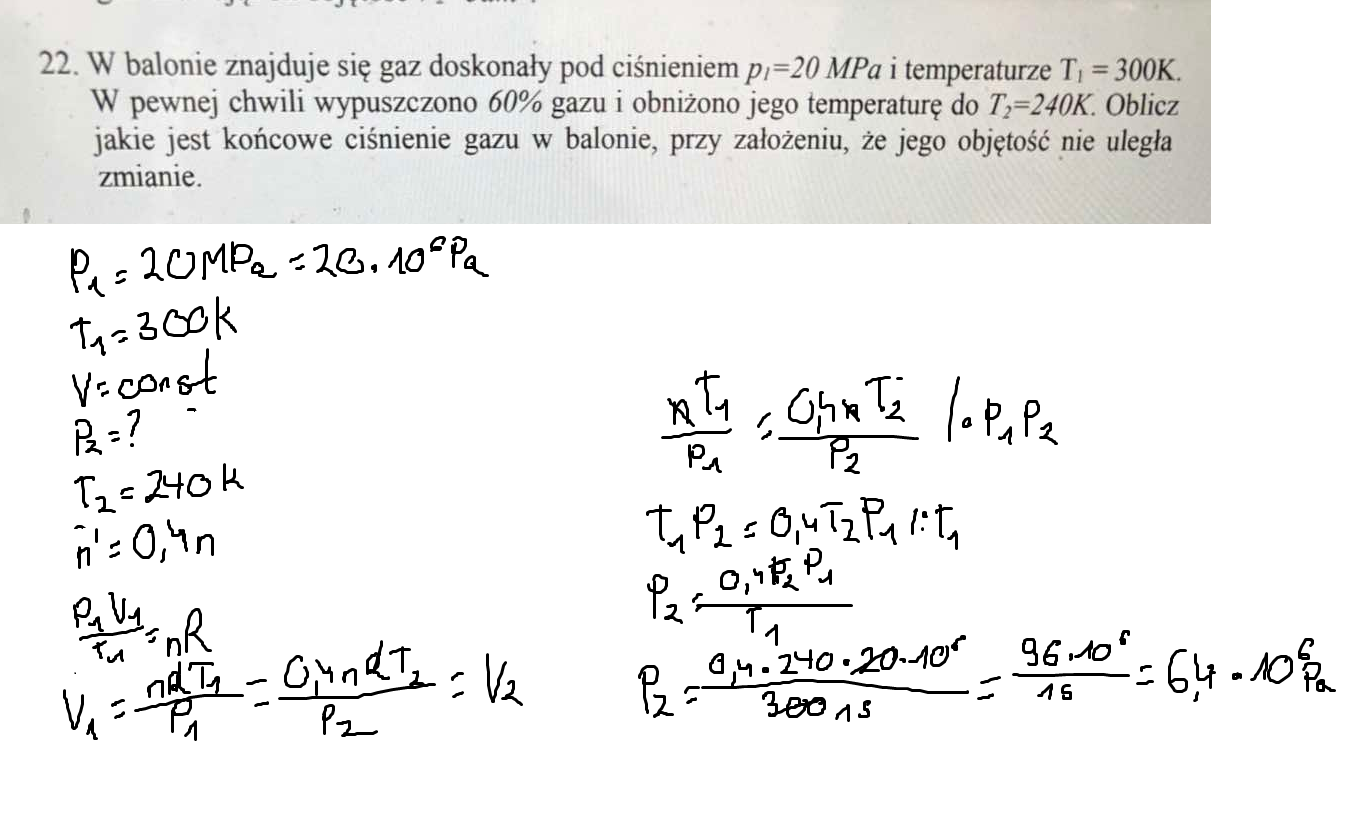 22. W balonie znajduje się gaz doskonały pod ciśnieniem p₁=20 MPa i temperaturze T₁ = 300K.
W pewnej chwili wypuszczono 60% gazu i obniżono jego temperaturę do T₂=240K. Oblicz
jakie jest końcowe ciśnienie gazu w balonie, przy założeniu, że jego objętość nie uległa
zmianie.
P₁ = 20MPa = 20·10⁶Pa
T₁ = 300k
V = const
P₂ = ?
T₂ = 240k
n' = 0,4n
P₁V₁/T₁ = nR
V₁ = nRT₁/P₁ = 0,4nRT₂/P₂ = V₂
nT₁/P₁ = 0,4nT₂/P₂ /·P₁P₂
T₁P₂ = 0,4T₂P₁ /:T₁
P₂ = 0,4T₂P₁/T₁
P₂ = 0,4·240·20·10⁶/300 15 = 96·10⁶/15 = 6,4·10⁶Pa